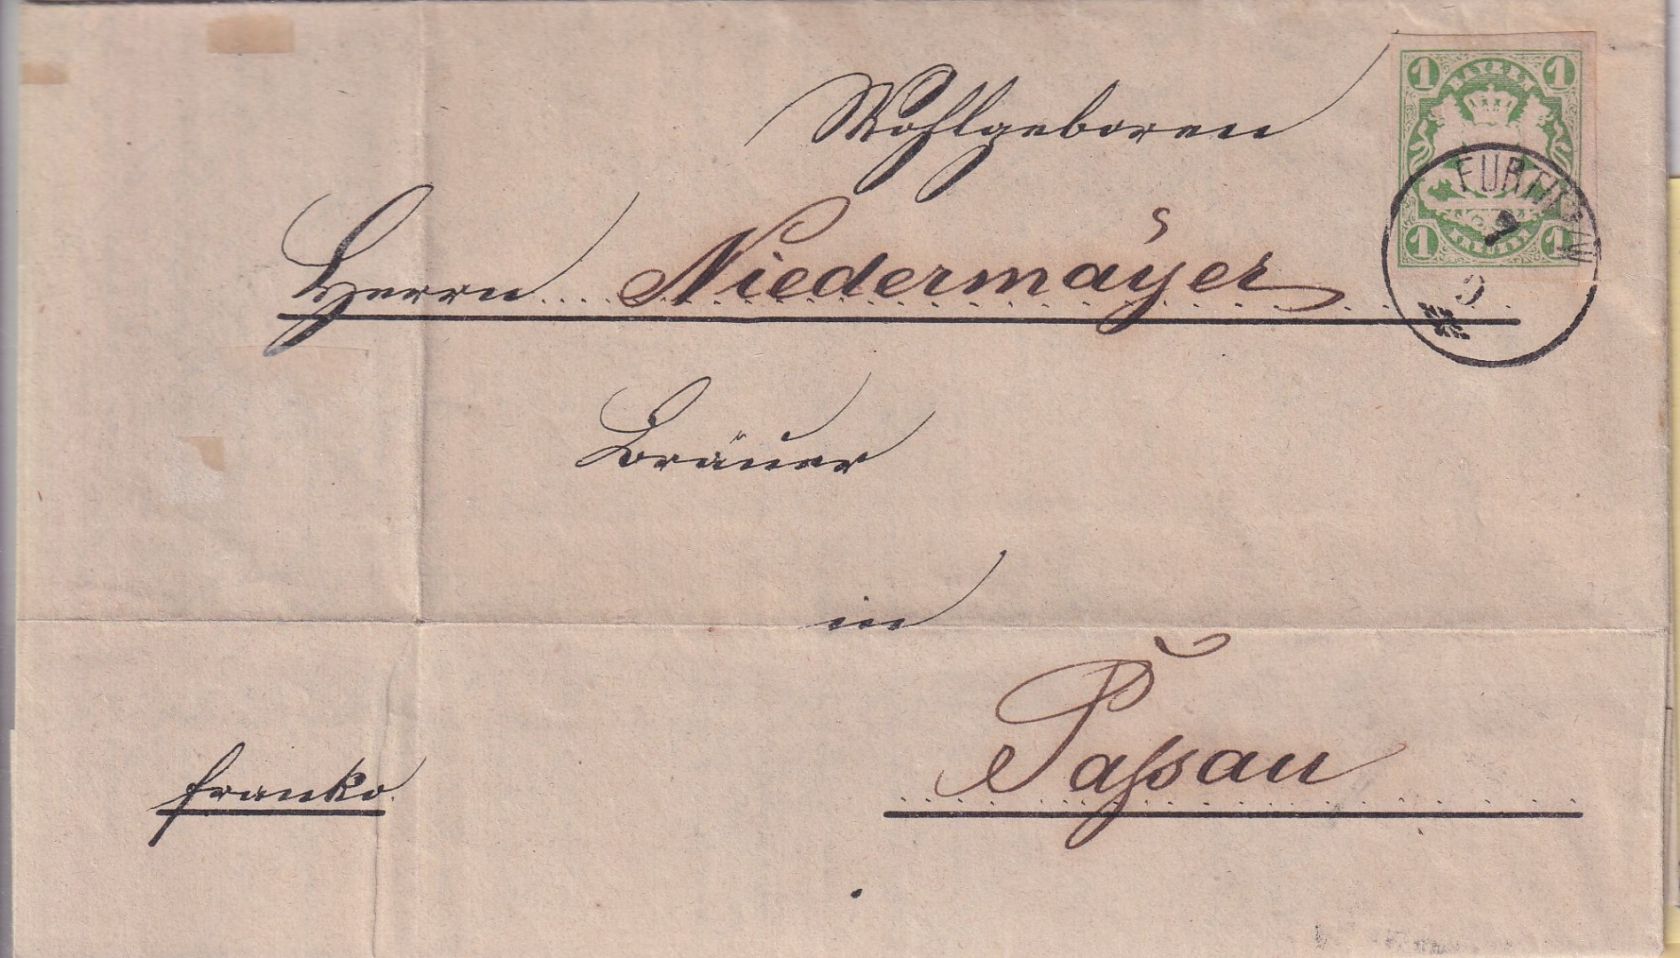 Wohlgeboren
1 BAYERN 1
1 1
FURTH
7
Herrn Niedermäyer
Bräuer
in
Paſsau
franko.